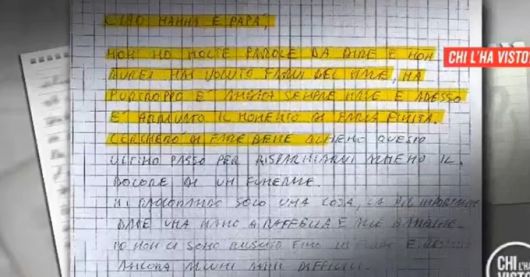 CIAO MAMMA E PAPÀ,
NON HO MOLTE PAROLE DA DIRE E NON
AVREI MAI VOLUTO FARVI DEL MALE, MA
PURTROPPO È ANDATA SEMPRE MALE E ADESSO
È ARRIVATO IL MOMENTO DI FARLA FINITA.
CERCHERÒ DI FARE BENE ALMENO QUESTO
ULTIMO PASSO PER RISPARMIARVI ALMENO IL
DOLORE DI UN FUNERALE.
MI RACCOMANDO SOLO UNA COSA, LA PIÙ IMPORTANTE
DATE UNA MANO A RAFFAELLA E
IO NON CI SONO RIUSCITO FINO IN FONDO E
ANCORA MOLTI ANNI DIFFICILI
CHI L'HA VISTO
CHI L'HA
VISTO